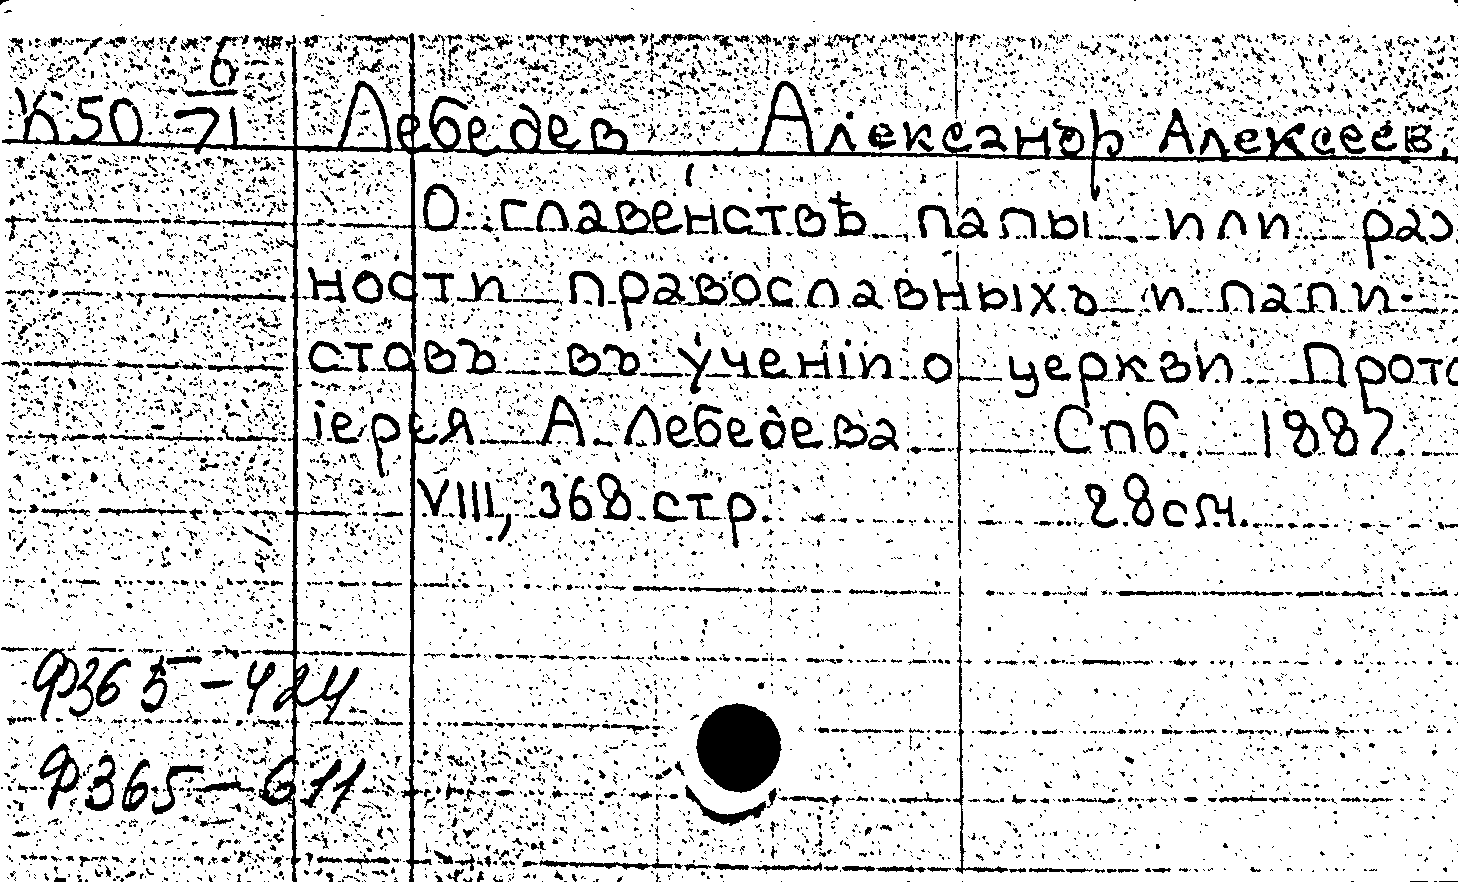 К50 6/71 Лебедев Александр Алексеев.
О главенствѣ папы или раз
ности православныхъ и папи-
стовъ въ ученіи о церкви Прото
іерея А. Лебедева Спб. 1887.
VIII, 368 стр. 28 см.
Ф365-424
Ф365-611